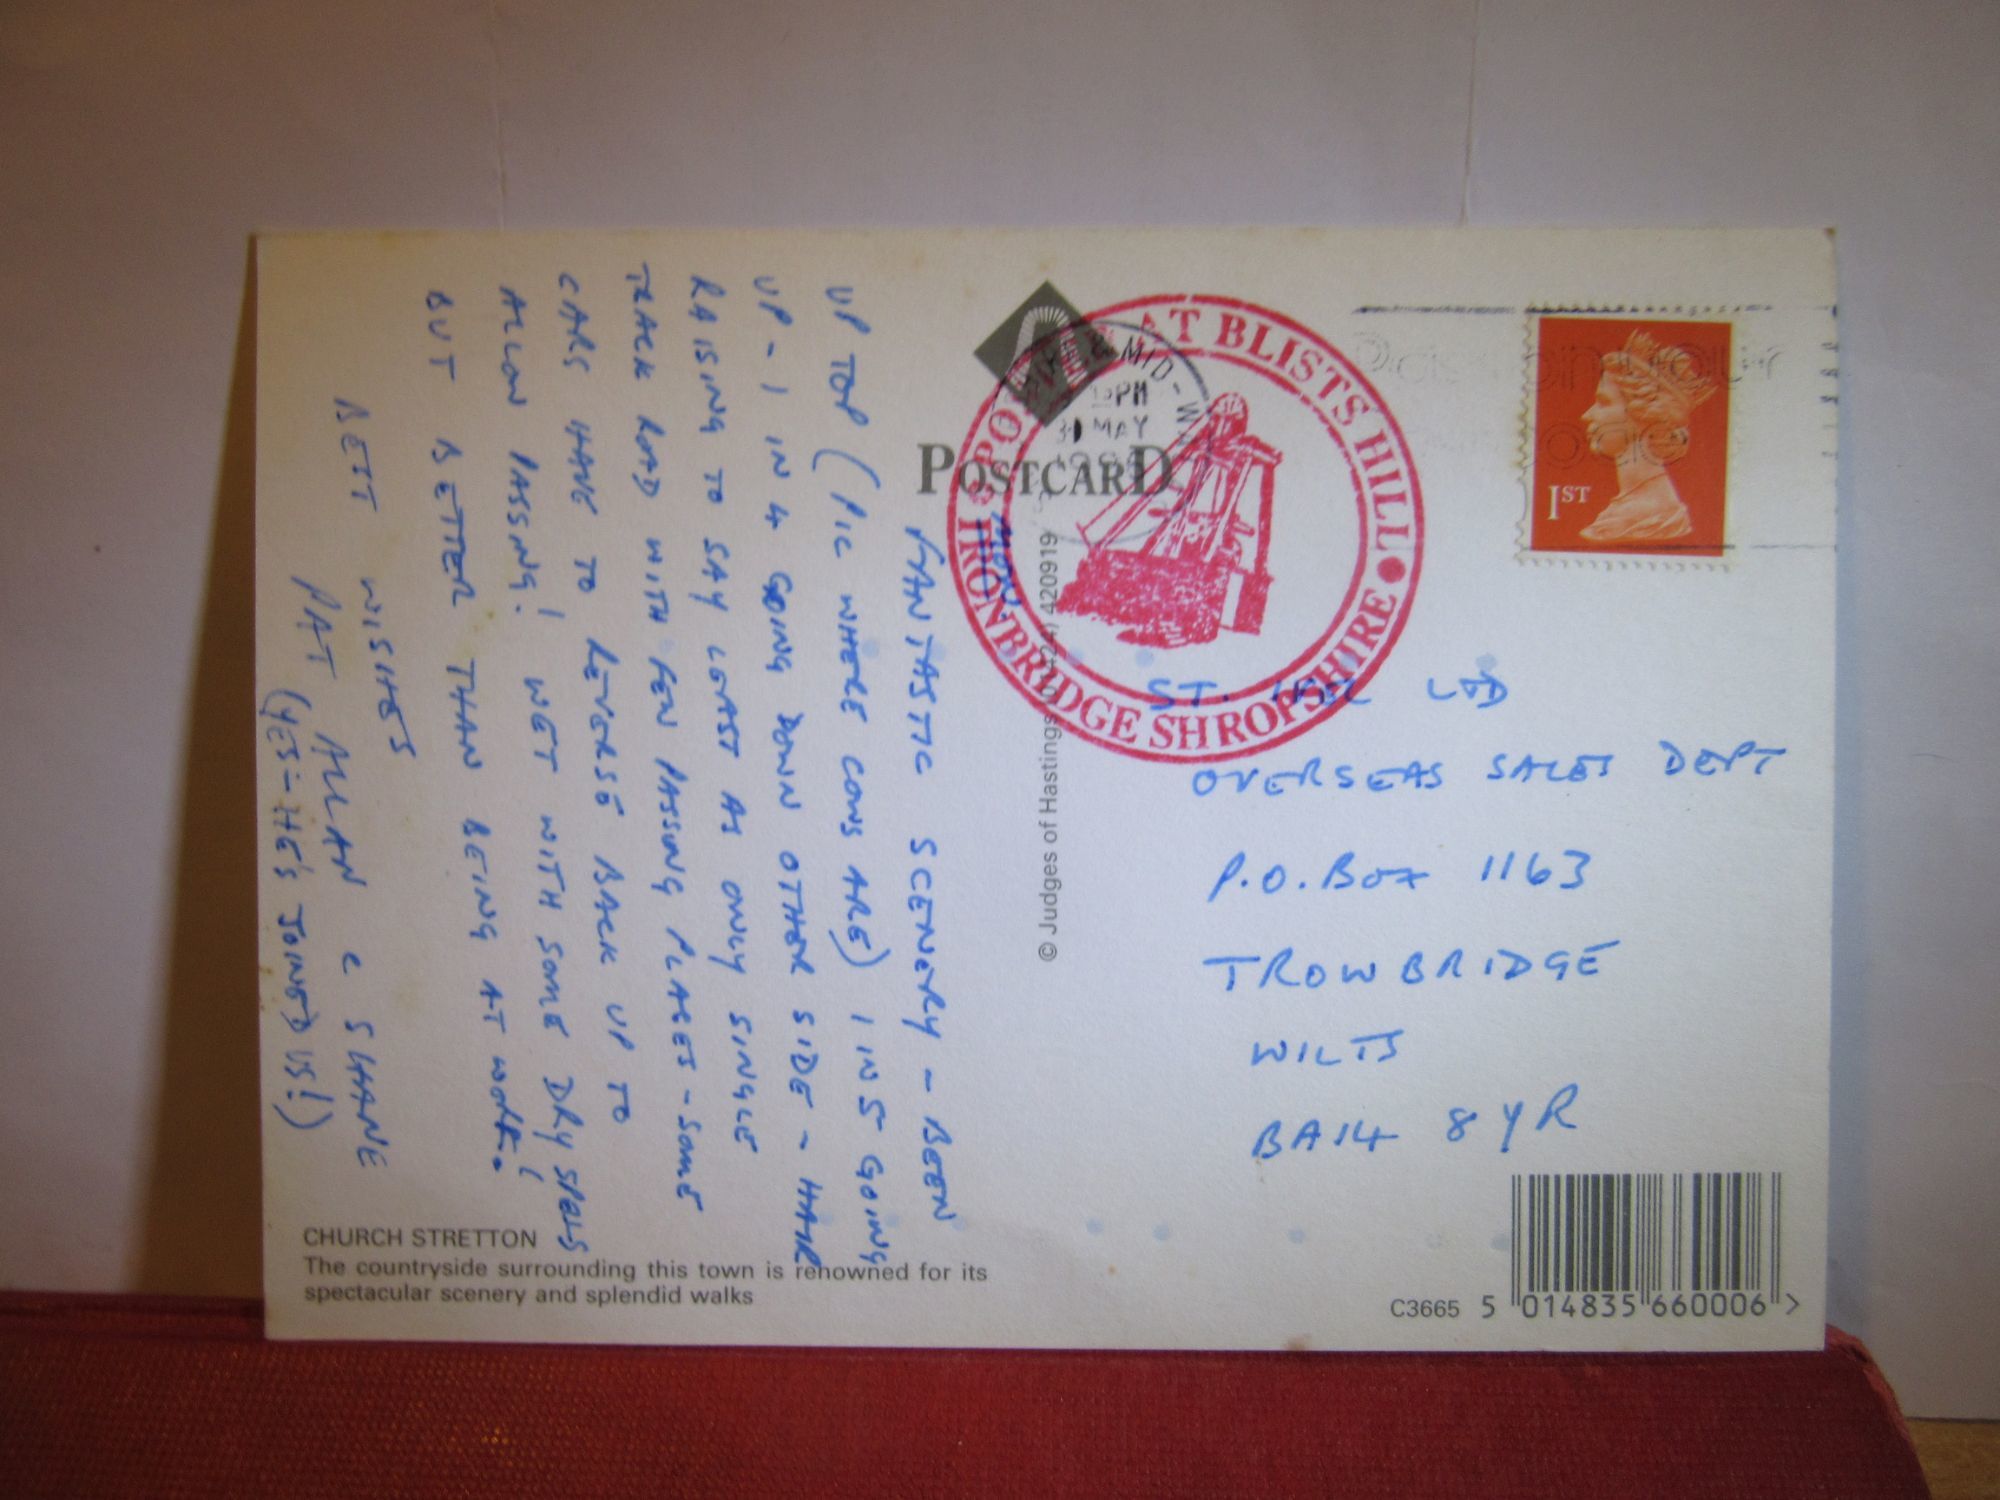 MON.
FANTASTIC SCENERY - BEEN
UP TOP (PIC WHERE COWS ARE) 1 IN 5 GOING
UP - 1 IN 4 GOING DOWN OTHER SIDE - HAIR
RAISING TO SAY LEAST AS ONLY SINGLE
TRACK ROAD WITH FEW PASSING PLACES - SOME
CARS HAVE TO REVERSE BACK UP TO
ALLOW PASSING! WET WITH SOME DRY SPELLS!
BUT BETTER THAN BEING AT WORK.
BEST WISHES
PAT ALLAN & SHANE
(YES - HE'S JOINED US!)
POSTCARD
© Judges of Hastings (0424) 420919
POSTED AT BLISTS HILL
IRONBRIDGE SHROPSHIRE
MID-W
PM
MAY
1ST
ST. IVEL LTD
OVERSEAS SALES DEPT
P.O. BOX 1163
TROWBRIDGE
WILTS
BA14 8YR
CHURCH STRETTON
The countryside surrounding this town is renowned for its
spectacular scenery and splendid walks
C3665 5 014835 660006 >